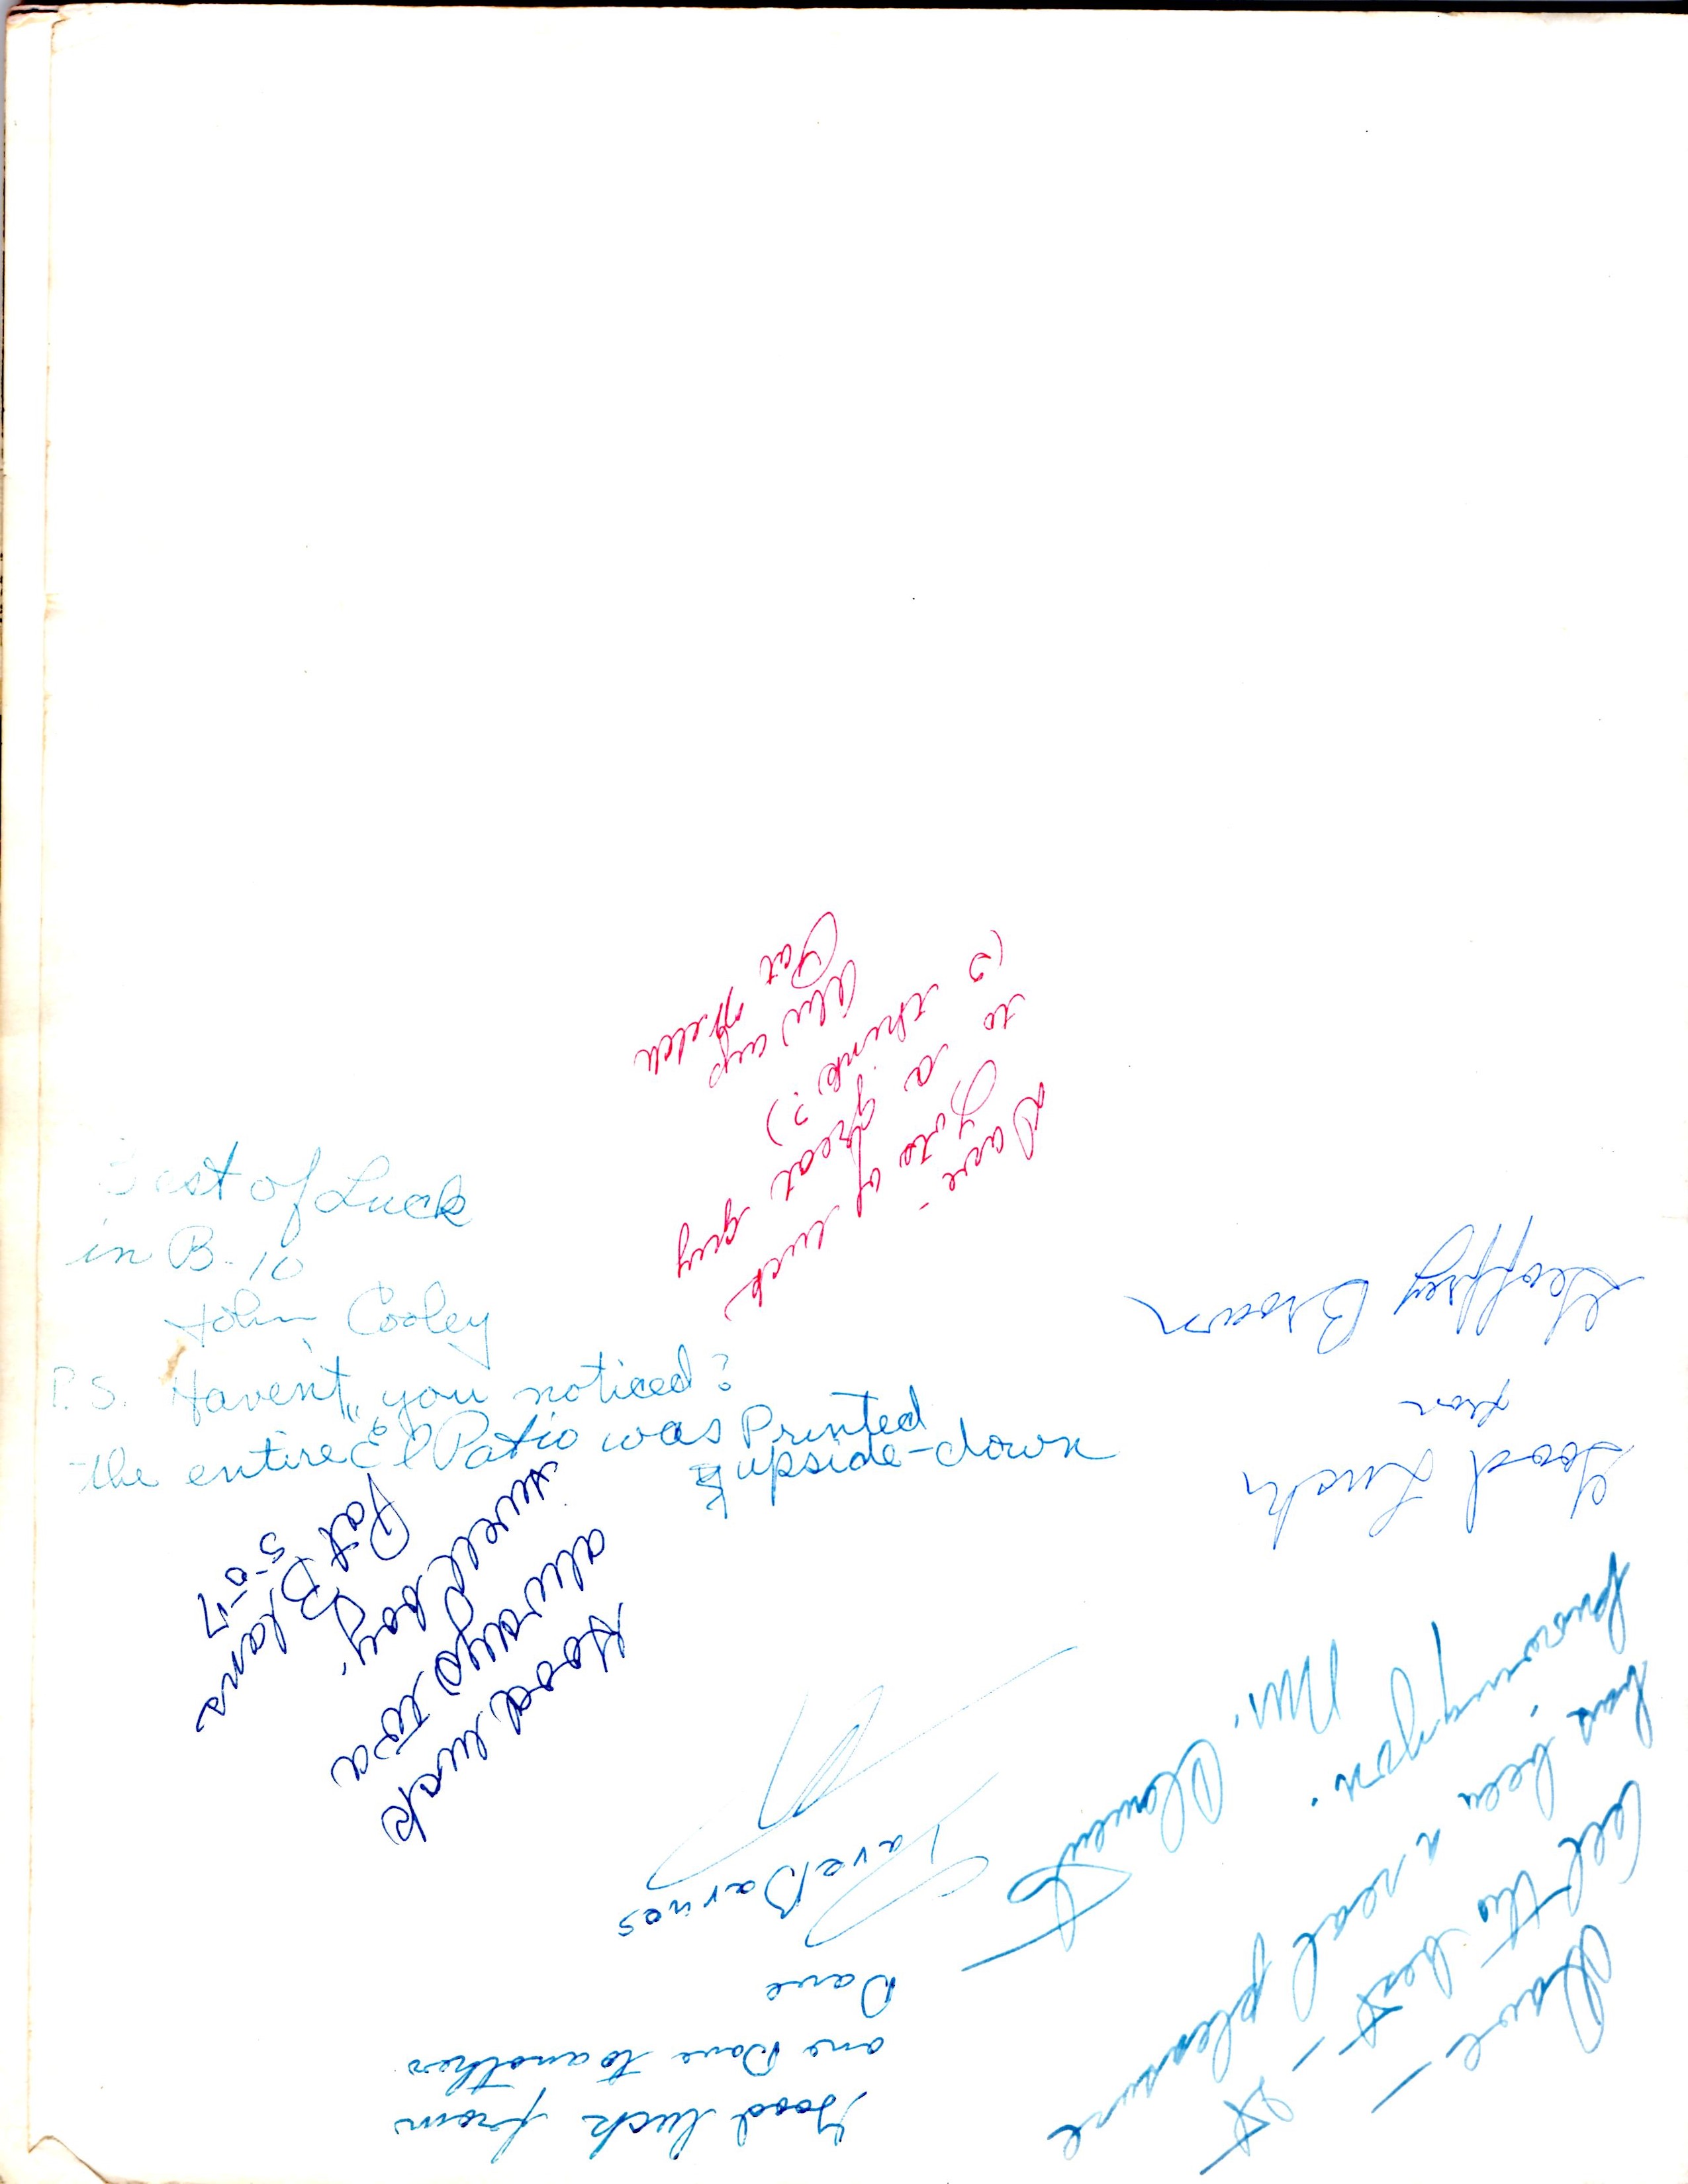 Best of Luck
in B-10
John Cooley
P.S. Haven't you noticed?
the entire "El Patio" was Printed
upside-down
Dave -
Lots of luck
to a great guy
(I think?)
Pat
Good Luck
from
Geoffrey Brown
Good luck
always to a
swell boy.
Pat B
S-0-17
Dave -
All the best - It
has been a real pleasure
knowing you.
Mr. Clement
Good luck from
one Dave to another
Dave
Dave Barnes